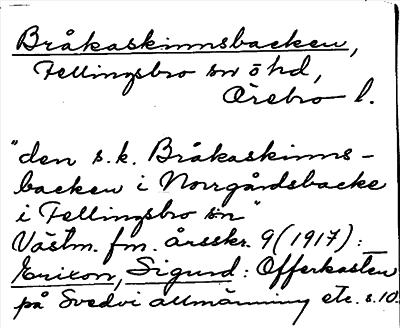 Bråkaskinnsbacken,
Fellingsbro sn ö hd,
Örebro l.
"den s.k. Bråkaskinns-
backen i Norrgårdsbacke
i Fellingsbro sn"
Västm. fm. årsskr. 9 (1917):
Erixon, Sigurd: Offerkasten
på Svedvi allmänning etc. s.10.